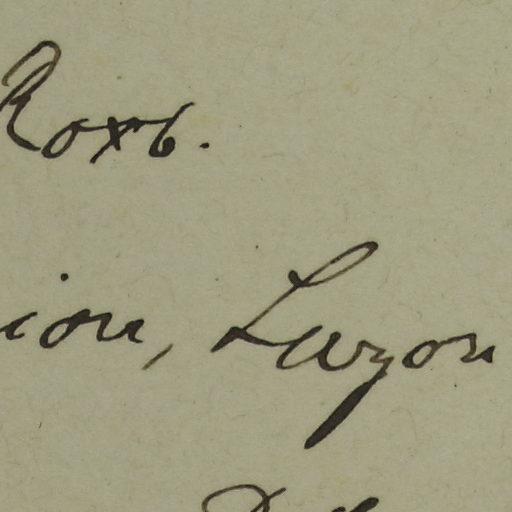 Roxb.
ion, Luzon